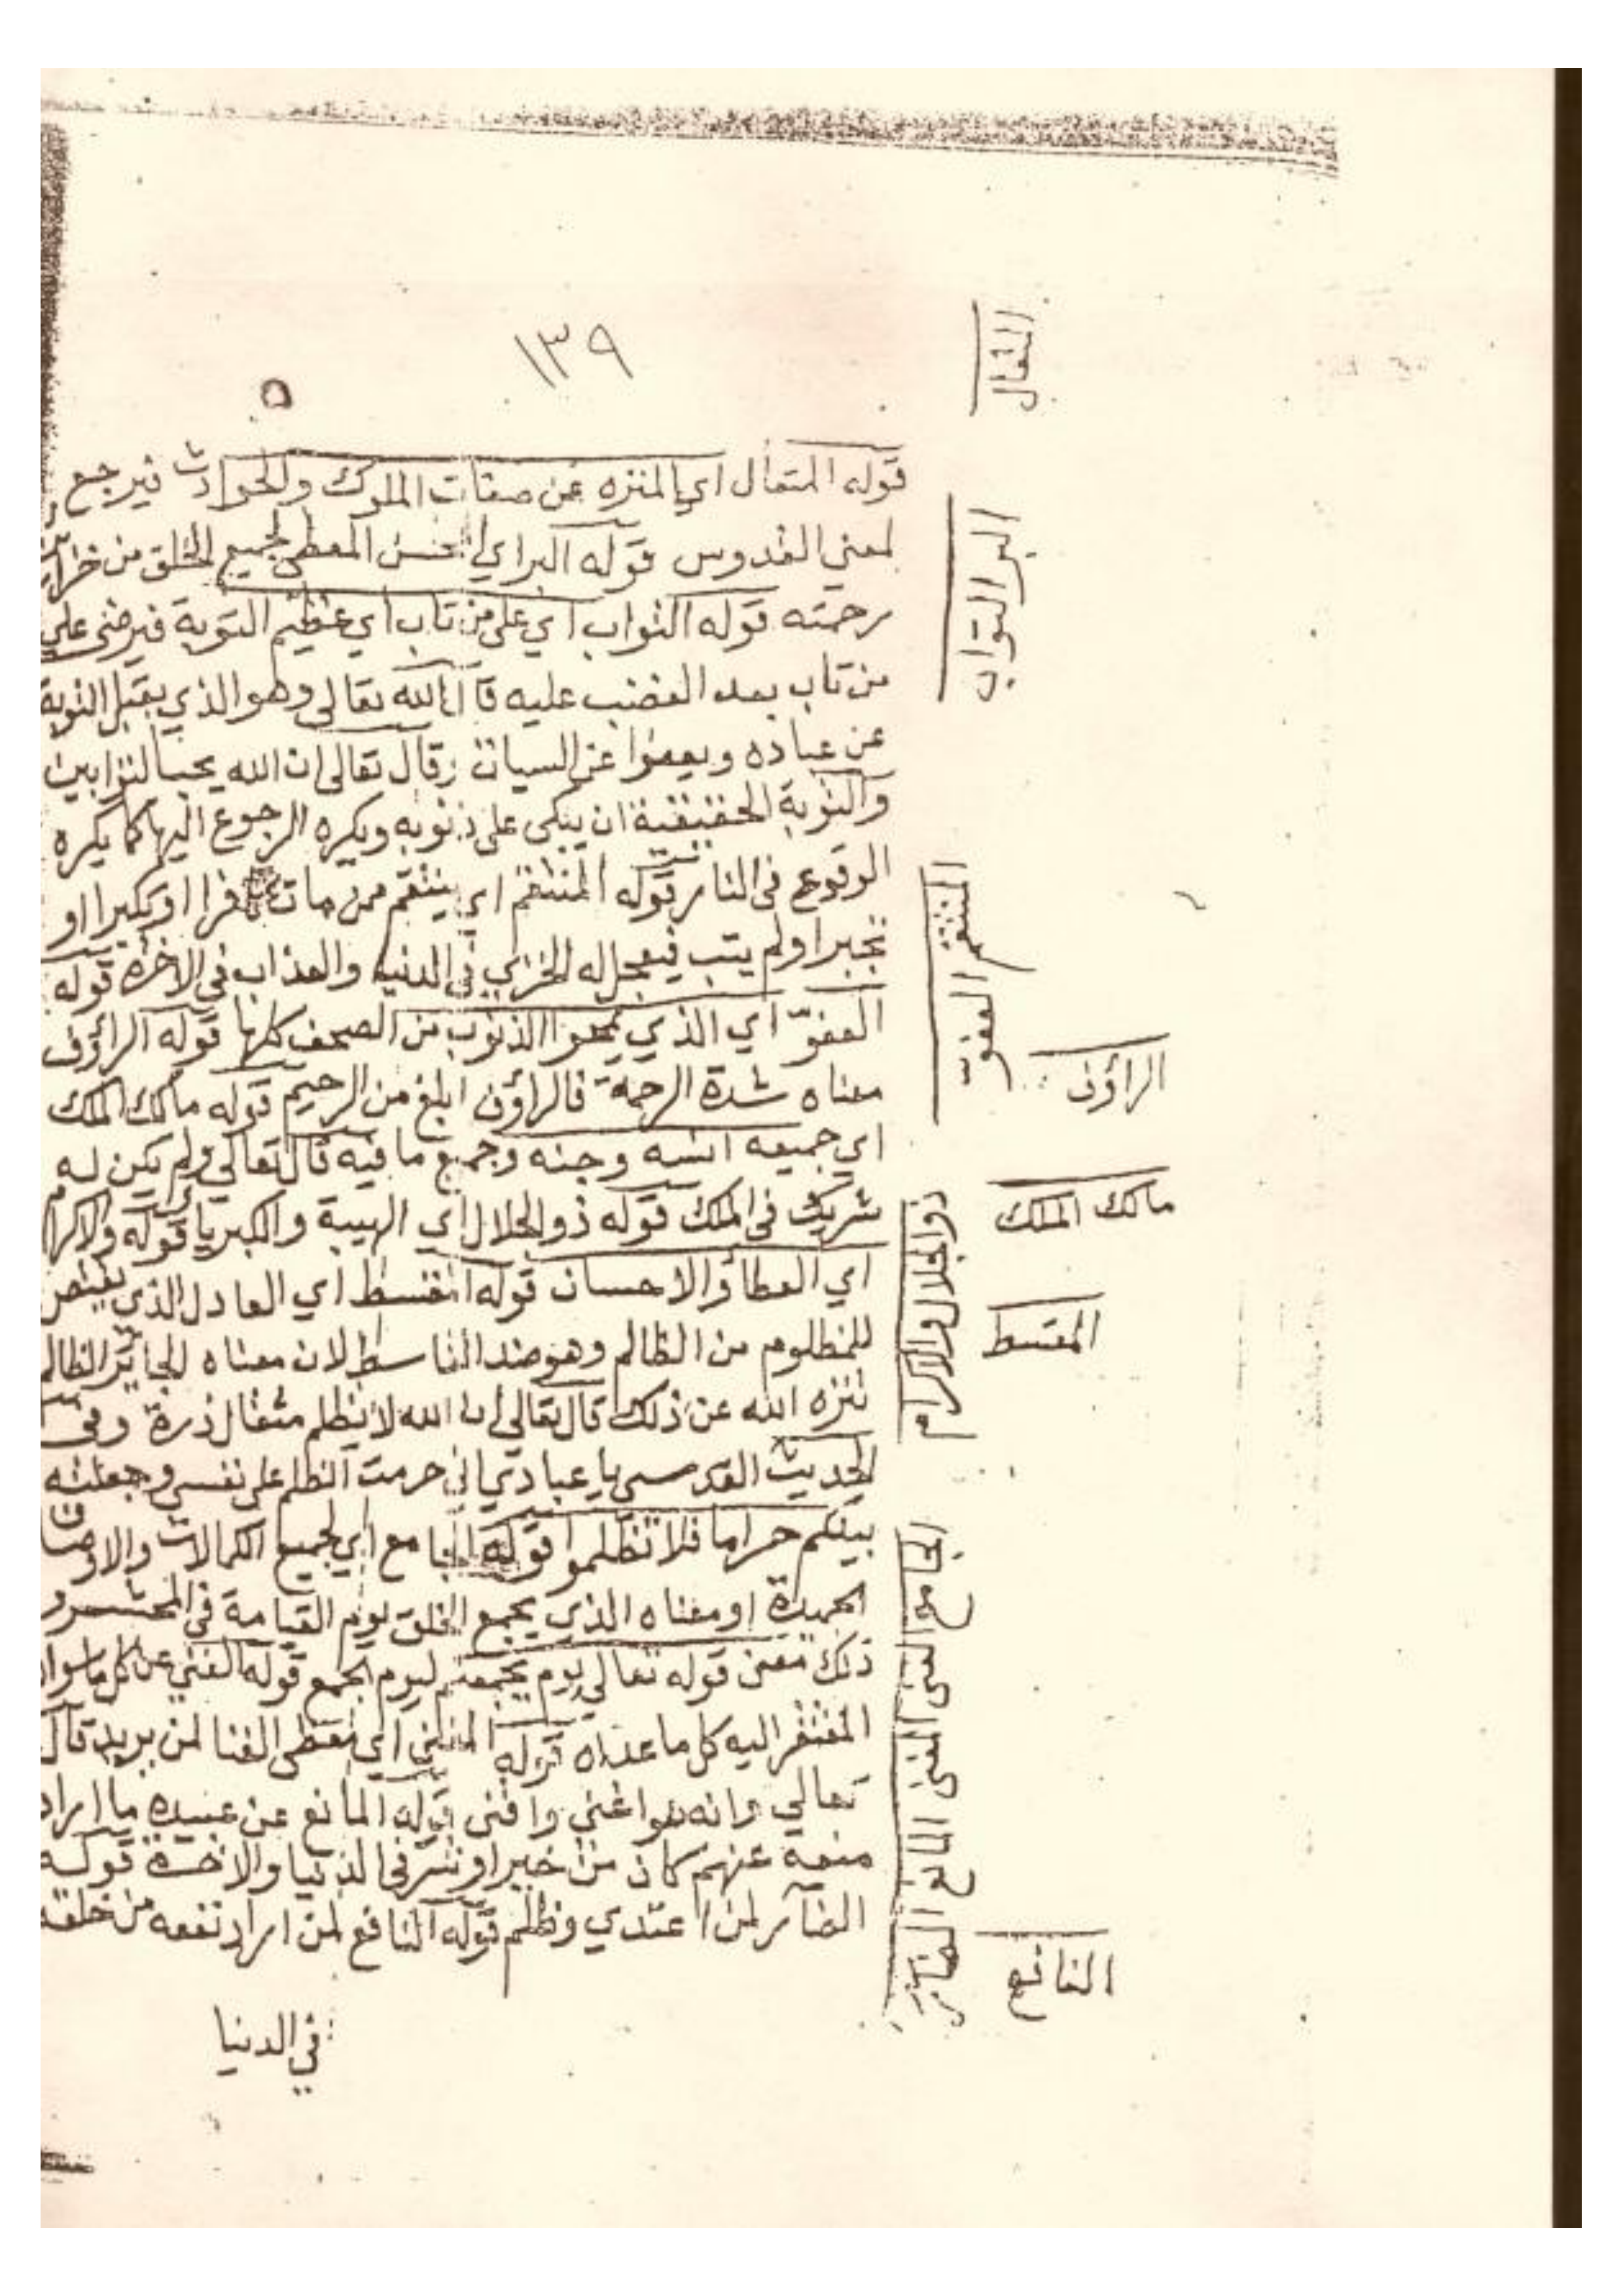 ١٣٩
٥
المتعال
قوله المتعال اي المنزه عن صفات الملوك والحوادث فيرجع
لمعني القدوس قوله البر اي المحسن المعطي لجميع الخلق من خزاين
رحمته قوله التواب اي على من تاب اي عظيم التوبة فيرضى علي
من تاب بعد الغضب عليه قال الله تعالى وهو الذي يقبل التوبة
عن عباده ويعفوا عن السيات وقال تعالى ان الله يحب التوابين
والتوبة الحقيقية ان يبكى على ذنوبه ويكره الرجوع اليها كما يكره
الوقوع فى النار قوله المنتقم اي ينتقم ممن مات كافرا او تكبرا او
تجبرا ولم يتب فيعجل له الخزي في الدنيا والعذاب في الاخرة قوله
العفوّ اي الذي يمحوا الذنوب من الصحف كلها قوله الراؤف
معناه شدة الرحمة فالراؤف ابلغ من الرحيم قوله مالك الملك
اي جميعه انسه وجنه وجميع ما فيه قال تعالي ولم يكن له
شريك فى الملك قوله ذو الجلال اي الهيبة والكبرياء قوله والاكرام
اي العطاء والاحسان قوله المقسط اي العادل الذي يقتص
للمظلوم من الظالم وهو ضد القاسط لان معناه الجائر الظالم
تنزه الله عن ذلك قال تعالى ان الله لا يظلم مثقال ذرة وفى
الحديث القدسى يا عبادي اني حرمت الظلم على نفسي وجعلته
بينكم حراما فلا تظلموا قوله الجامع اي لجميع الكمالات والاوصاف
الحميدة او معناه الذي يجمع الخلق يوم القيامة فى المحشر و
ذلك معنى قوله تعالي يوم يجمعكم ليوم الجمع قوله الغني عن كل ما سواه
المفتقر اليه كل ما عداه قوله المغني اي معطى الغنا لمن يريد قال
تعالي وانه هو اغنى واقنى قوله المانع عن عبيده ما اراد
منعه عنهم كان من خير او شر فى الدنيا والاخرة قوله
الضآر لمن اعتدي وظلم قوله النافع لمن اراد نفعه من خلقه
في الدنيا
البر التواب
المنتقم العفوّ
الراؤف
مالك الملك
ذو الجلال والاكرام
المقسط
الجامع الغنى المغنى المانع الضار
النافع